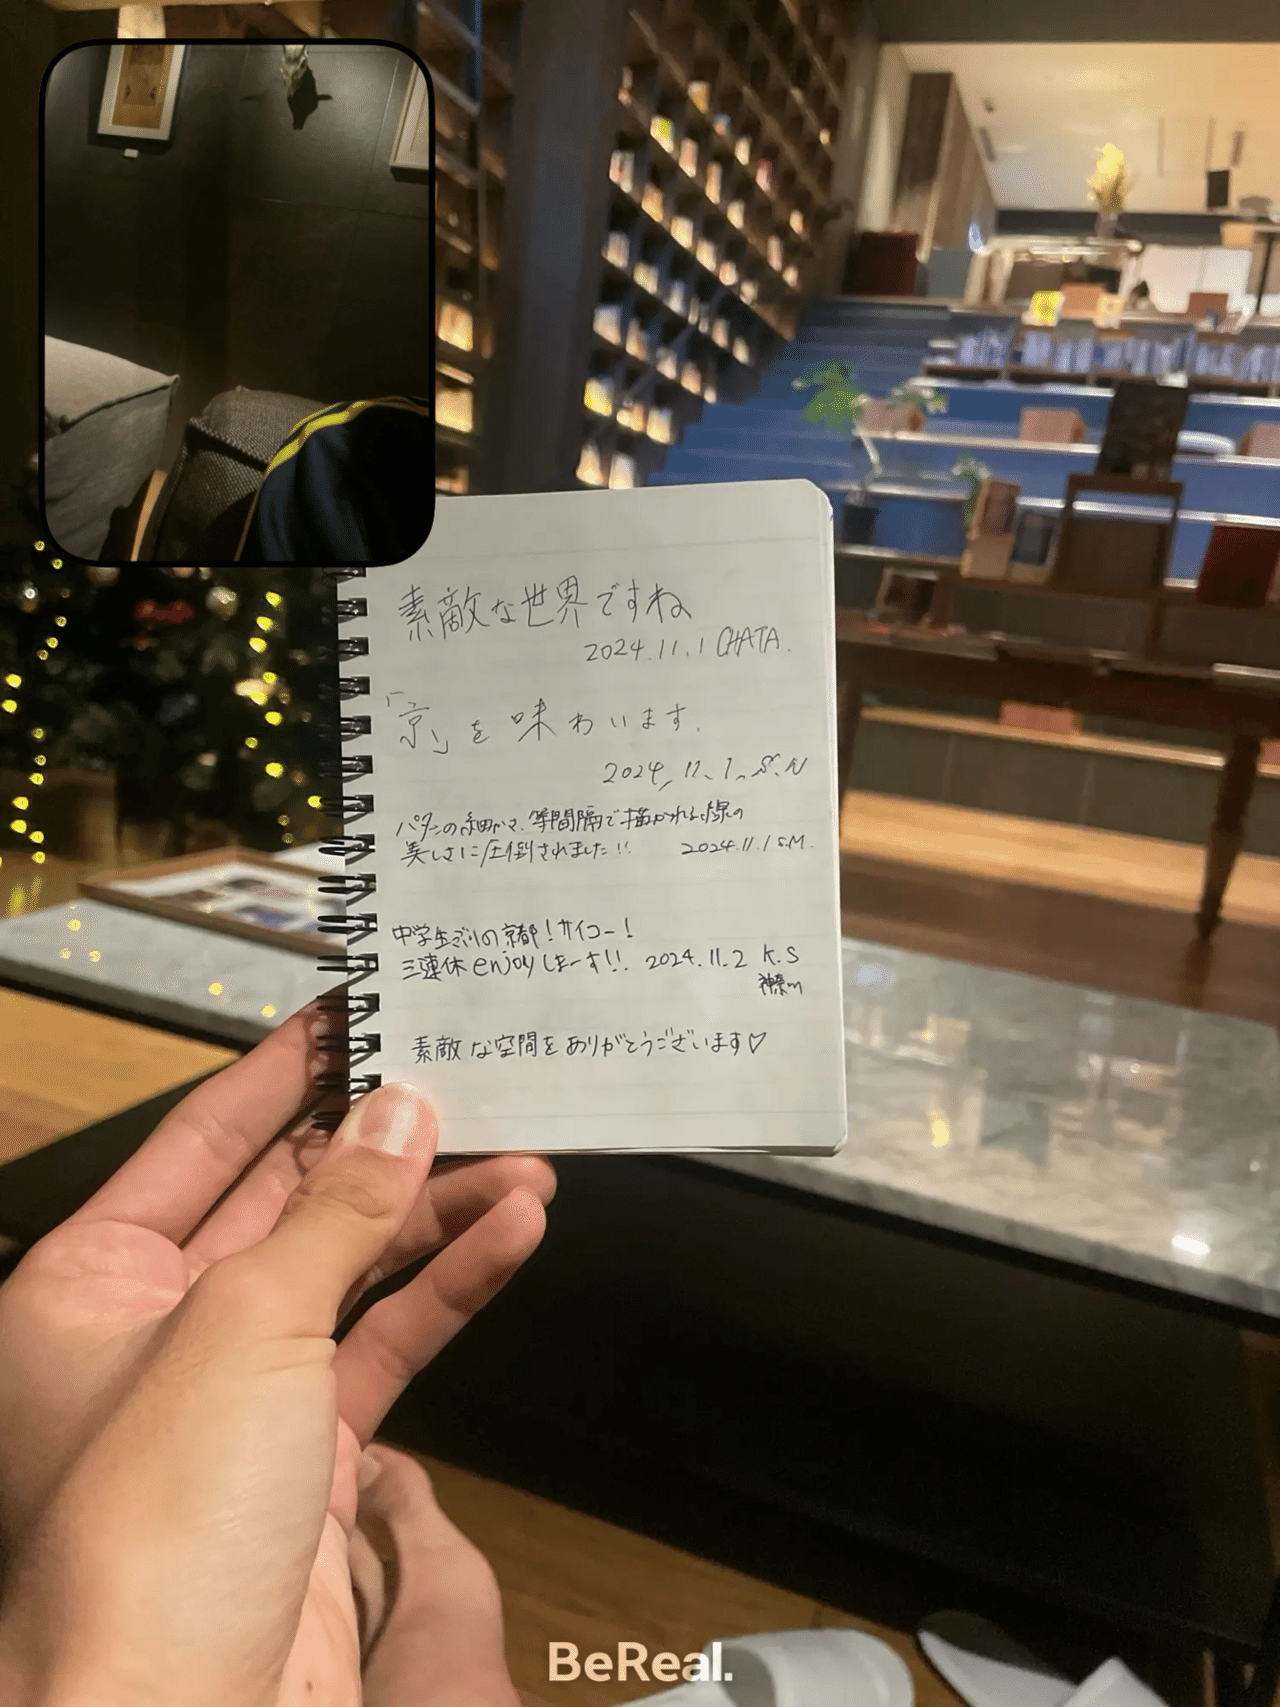 素敵な世界ですね
2024.11.1 CHATA.
「京」を味わいます.
2024,11.1.S.N
パターンの細かさ、等間隔で描かれる線の
美しさに圧倒されました!! 2024.11.1 S.M.
中学生ぶりの京都!サイコー!
三連休enjoyしまーす!!. 2024.11.2 K.S
素敵な空間をありがとうございます♡
BeReal.